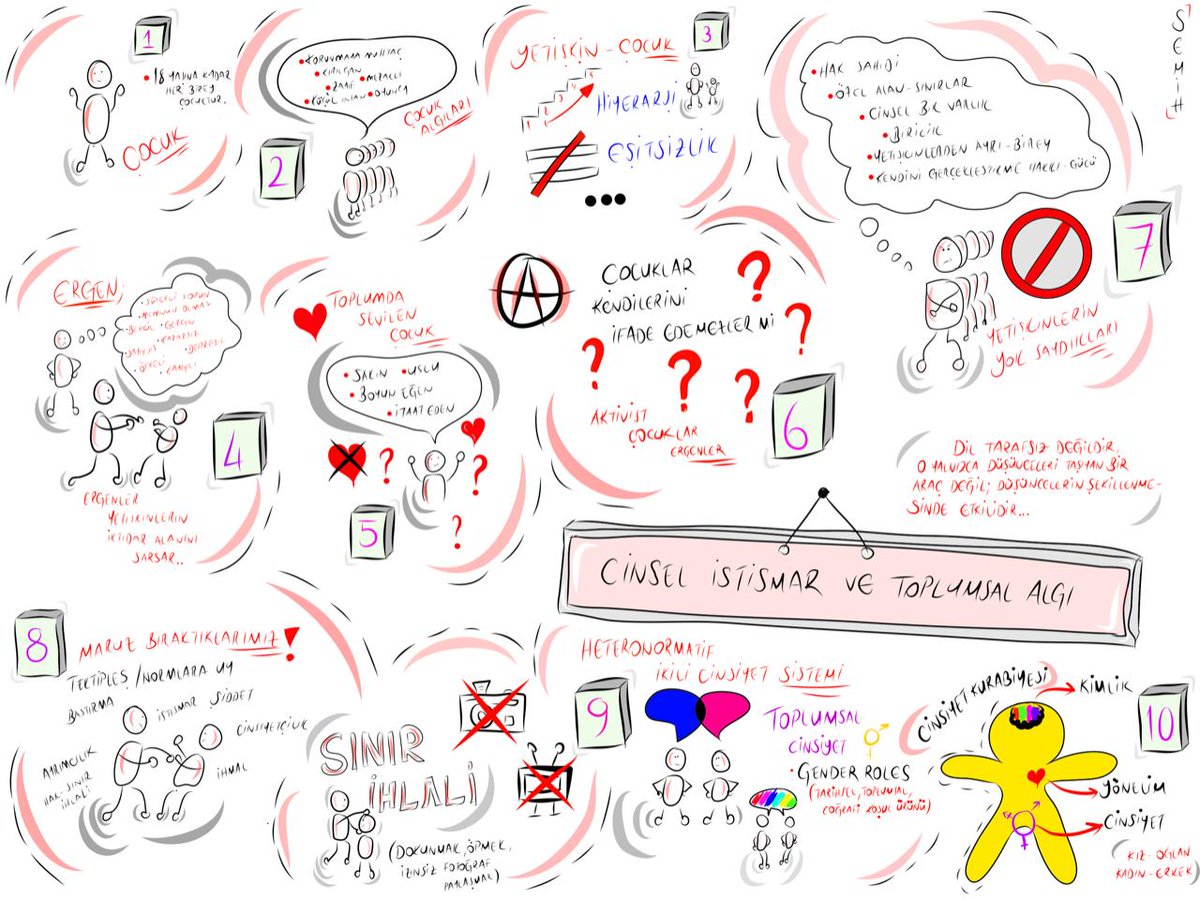 1
• 18 YAŞINA KADAR
HER BİREY
ÇOCUKTUR.
ÇOCUK
2
• KORUNMAYA MUHTAÇ
• KIRILGAN
• ZAYIF • MERAKLI
• KÜÇÜK İNSAN • OYUNCU
ÇOCUK
ALGILARI
3
YETİŞKİN - ÇOCUK
HİYERARŞİ
EŞİTSİZLİK
7
• HAK SAHİBİ
• ÖZEL ALAN - SINIRLAR
• CİNSEL BİR VARLIK
• BİRİCİK
• YETİŞKİNLERDEN AYRI - BİREY
• KENDİNİ GERÇEKLEŞTİRME HAKKI - GÜCÜ
YETİŞKİNLERİN
YOK SAYDIKLARI
SEMİH
4
ERGEN,
• SÜREKLİ SORUN
• MEMNUN OLMAZ
• BENCİL • GERGİN
• KARARSIZ
• DEPRESİF
ERGENLER
YETİŞKİNLERİN
İKTİDAR ALANINI
SARSAR..
5
TOPLUMDA
SEVİLEN
ÇOCUK
• SAKİN • USLU
• BOYUN EĞEN
• İTAAT EDEN
? ? ?
6
A
ÇOCUKLAR
KENDİLERİNİ
İFADE EDEMEZLER Mİ
? ? ? ? ?
AKTİVİST
ÇOCUKLAR
ERGENLER
DİL TARAFSIZ DEĞİLDİR,
O YALNIZCA DÜŞÜNCELERİ TAŞIYAN BİR
ARAÇ DEĞİL; DÜŞÜNCELERİN ŞEKİLLENME-
SİNDE ETKİLİDİR...
CİNSEL İSTİSMAR VE TOPLUMSAL ALGI
8
MARUZ BIRAKTIKLARIMIZ!
TEKTİPLEŞ / NORMLARA UY
BASTIRMA
İSTİSMAR ŞİDDET
CİNSİYETÇİLİK
AYRIMCILIK
HAK-SINIR
İHLALİ
İHMAL
SINIR
İHLALİ
(DOKUNMAK, ÖPMEK,
İZİNSİZ FOTOĞRAF
PAYLAŞMAK)
9
HETERONORMATİF
İKİLİ CİNSİYET SİSTEMİ
TOPLUMSAL
CİNSİYET
• GENDER ROLES
(TARİHSEL, TOPLUMSAL,
COĞRAFİ KOŞUL ÜRÜNÜ)
10
CİNSİYET KURABİYESİ
KİMLİK
YÖNELİM
CİNSİYET
(KIZ - OĞLAN
KADIN - ERKEK)